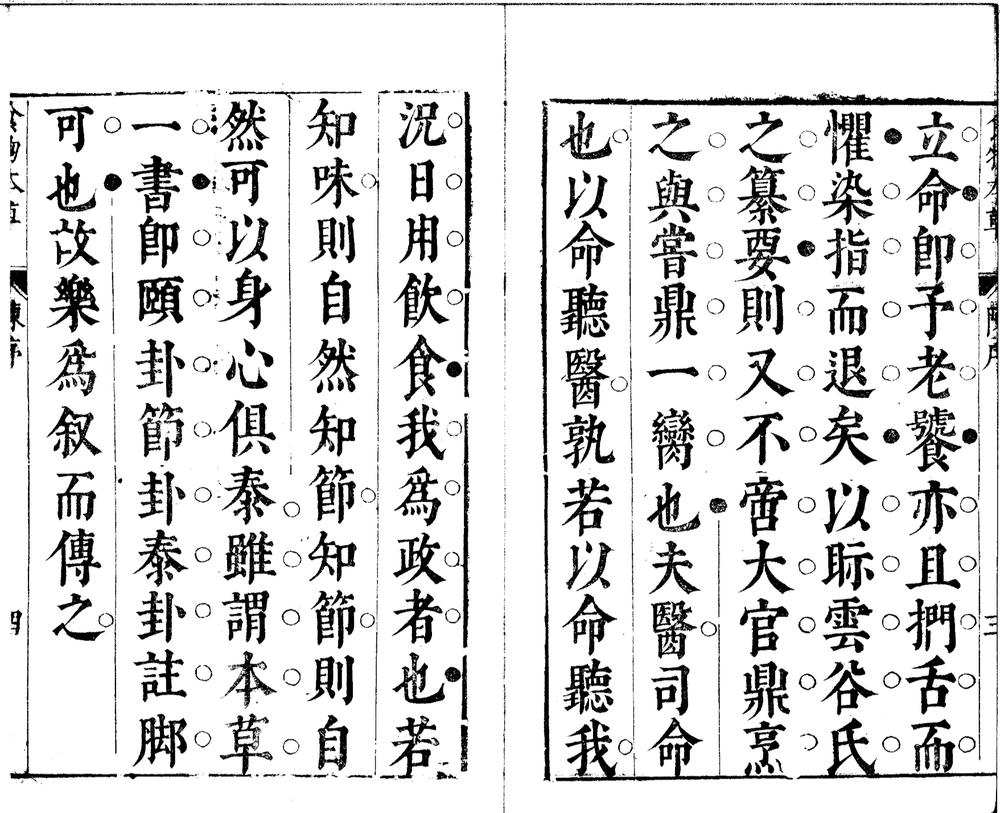 立命即予老饕亦且捫舌而
懼染指而退矣以眎雲谷氏
之纂要則又不啻大官鼎烹
之與嘗鼎一臠也夫醫司命
也以命聽醫孰若以命聽我
三
況日用飲食我為政者也若
知味則自然知節知節則自
然可以身心俱泰雖謂本草
一書即頤卦節卦泰卦註脚
可也故樂爲叙而傳之
四